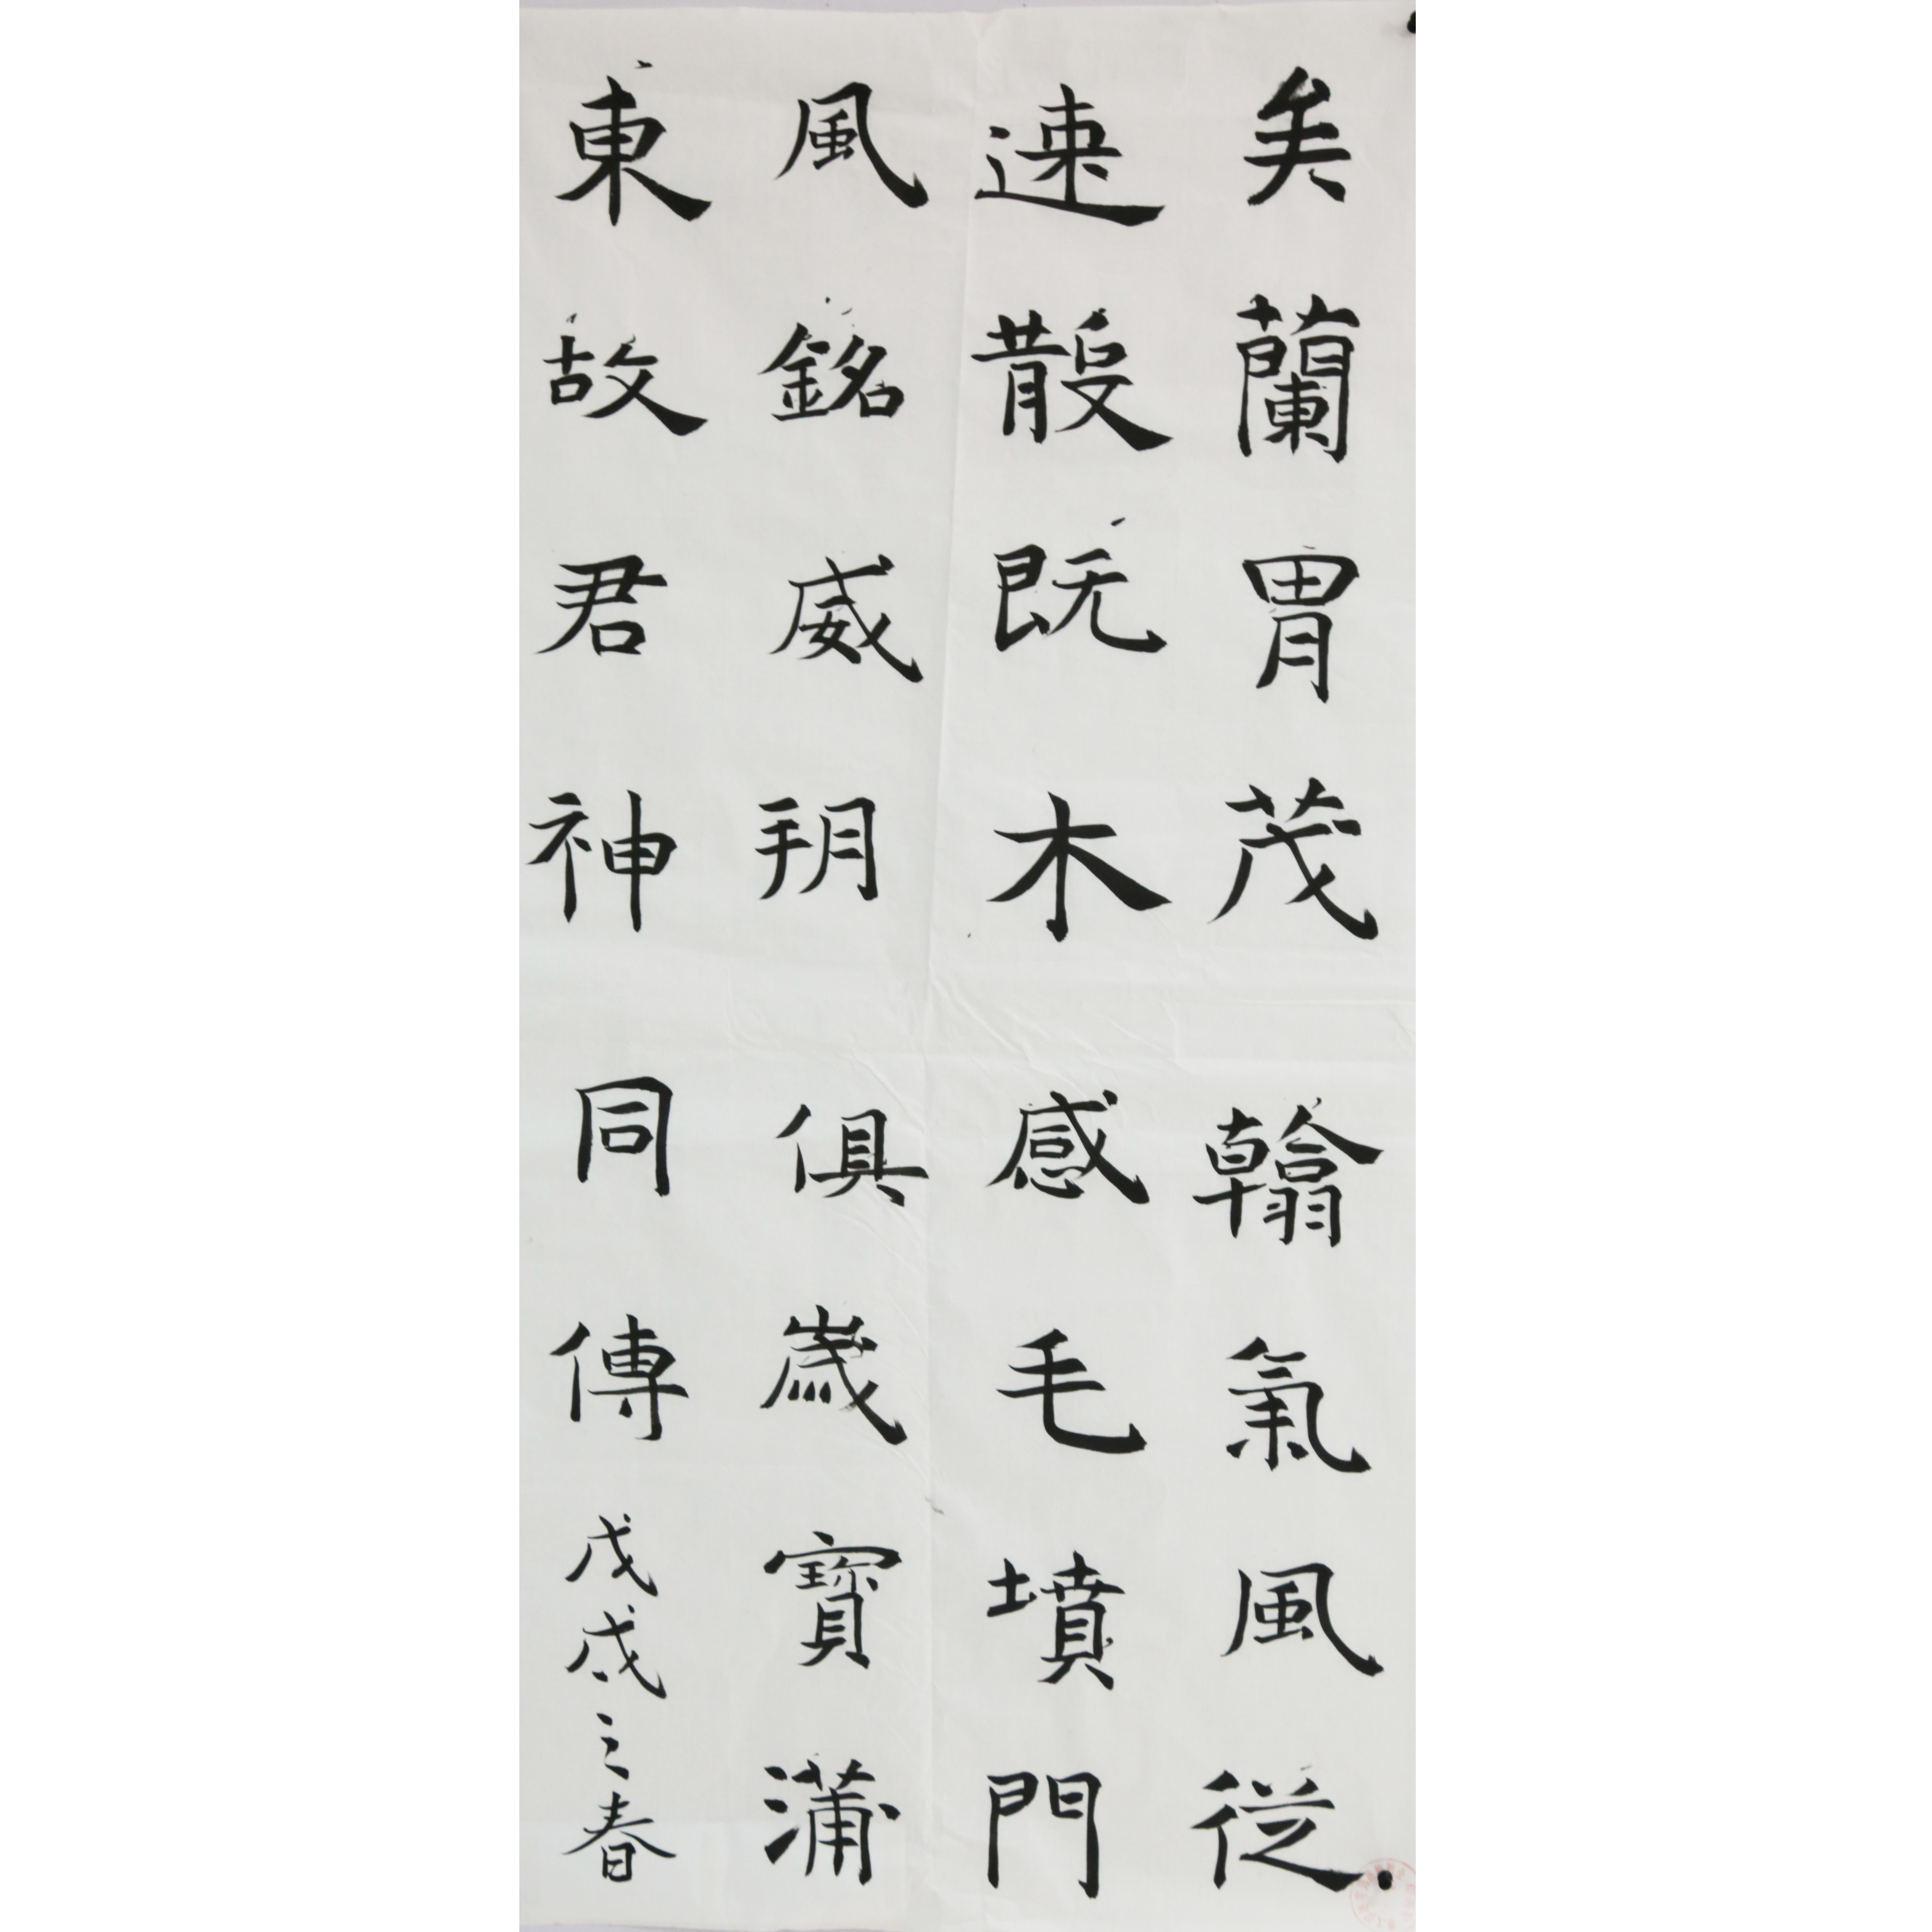 矣蘭胄茂翰氣風從
速散既木感毛墳門
風銘威玥俱歲寶蒲
東故君神同傳
戊戌之春